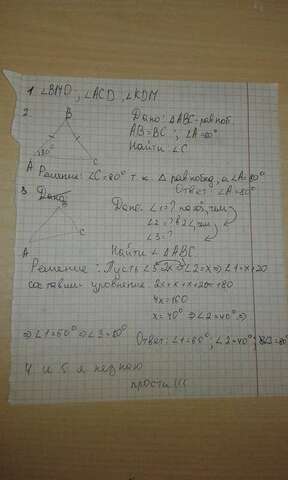 1 ∠BMD, ∠ACD, ∠KDM
2
B
Дано: ΔABC-равноб.
AB=BC; ∠A=80°
Найти ∠C
80°
A
C
Решение: ∠C=80° т.к Δ равнобед, а ∠A=80°
Ответ: ∠A=80°
3 Дано
Дано: ∠1=?
∠2=?
∠3=?
A
Найти ∠ ΔABC
Решение: Пусть ∠3=2x ⇒ ∠2=x ⇒ ∠1=x+20
составим уровнение. 2x+x+x+20=180
4x=160
x=40° ⇒ ∠2=40° ⇒
⇒ ∠1=60° ⇒ ∠3=80°
Ответ: ∠1=60°; ∠2=40°; ∠3=80°
4 и 5 я не знаю
прости (((